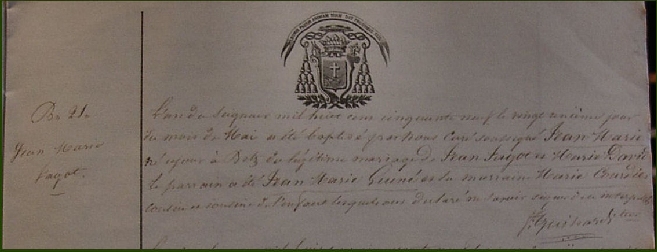 Bn 21.
Jean Marie
Fagot.
L'an du Seigneur mil huit cent cinquante neuf le vingt unième jour
du mois de Mai a été baptisé par Nous Curé soussigné Jean Marie
né ce jour à Betz du légitime mariage de Jean Fagot et Marie David
le parrain a été Jean Marie et la marraine Marie
cousin et cousine de l'enfant lesquels ont déclaré ne savoir signer de ce interpellés